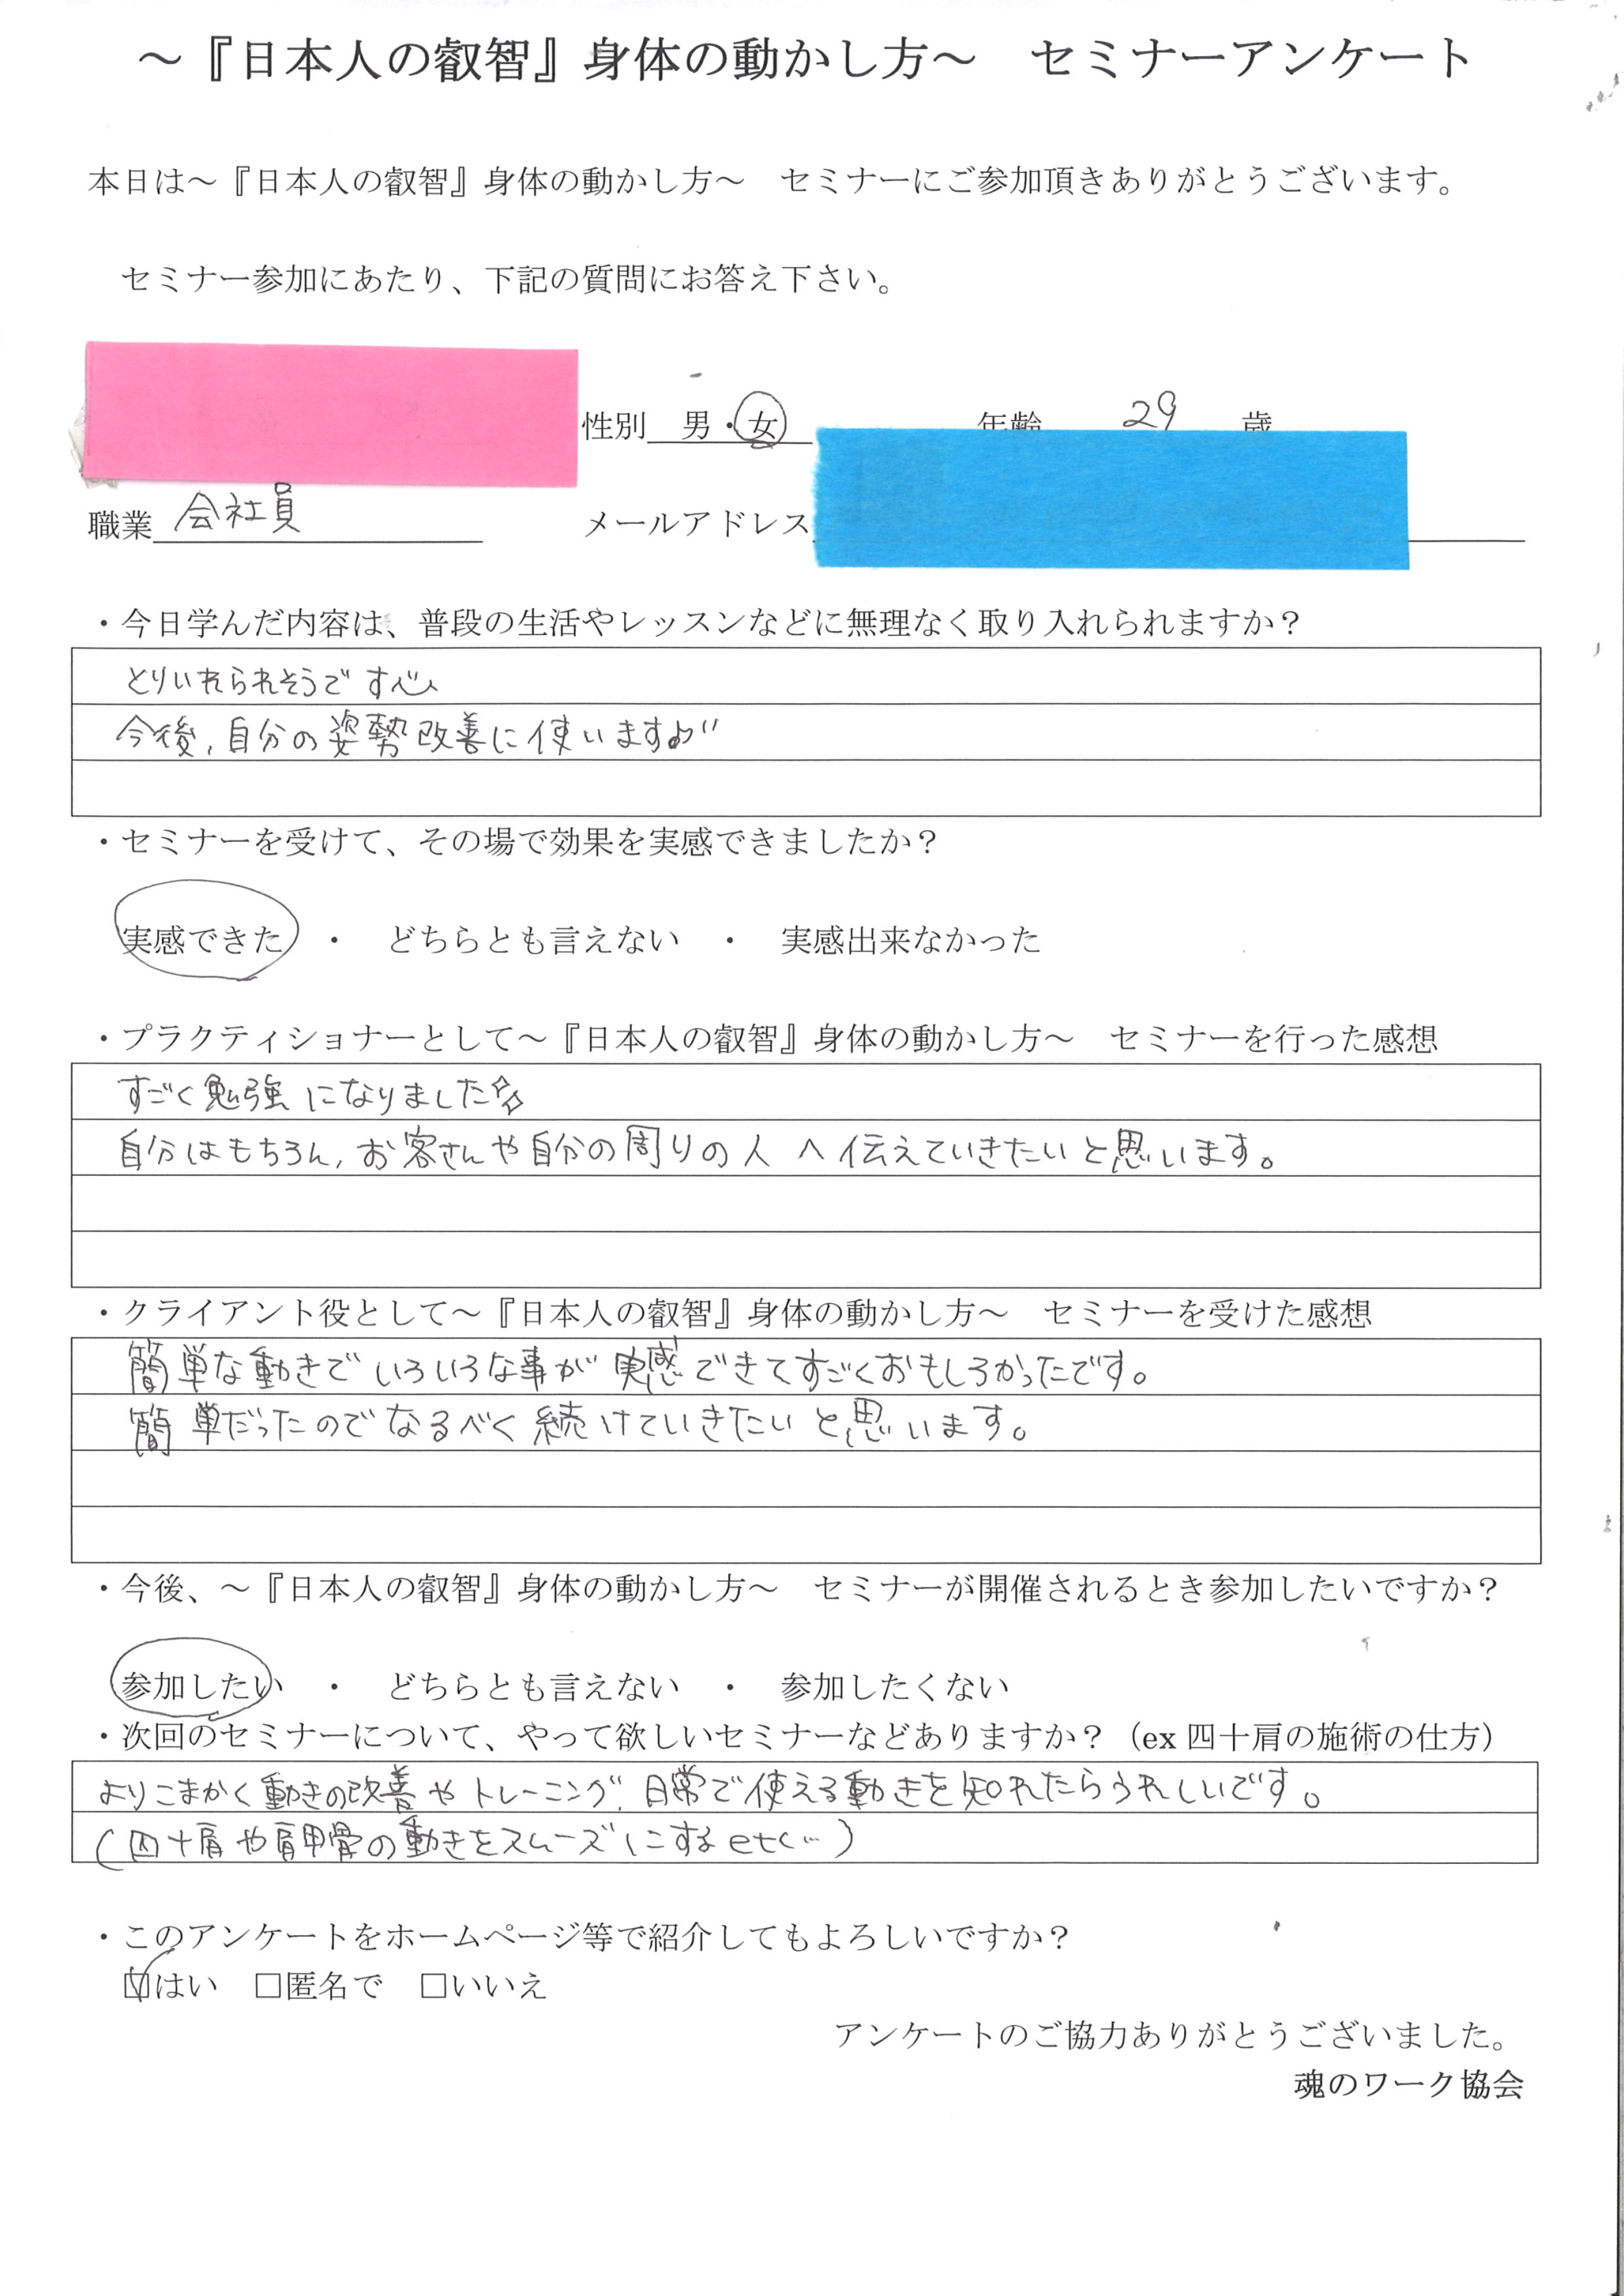 ～『日本人の叡智』身体の動かし方～　セミナーアンケート
本日は～『日本人の叡智』身体の動かし方～　セミナーにご参加頂きありがとうございます。
セミナー参加にあたり、下記の質問にお答え下さい。
性別　男・女　年齢　29　歳
職業　会社員　メールアドレス
・今日学んだ内容は、普段の生活やレッスンなどに無理なく取り入れられますか？
とりいれられそうです
今後、自分の姿勢改善に使います
・セミナーを受けて、その場で効果を実感できましたか？
実感できた　・　どちらとも言えない　・　実感出来なかった
・プラクティショナーとして～『日本人の叡智』身体の動かし方～　セミナーを行った感想
すごく勉強になりました☆
自分はもちろん、お客さんや自分の周りの人へ伝えていきたいと思います。
・クライアント役として～『日本人の叡智』身体の動かし方～　セミナーを受けた感想
簡単な動きでいろいろな事が実感できてすごくおもしろかったです。
簡単だったのでなるべく続けていきたいと思います。
・今後、～『日本人の叡智』身体の動かし方～　セミナーが開催されるとき参加したいですか？
参加したい　・　どちらとも言えない　・　参加したくない
・次回のセミナーについて、やって欲しいセミナーなどありますか？（ex 四十肩の施術の仕方）
よりこまかく動きの改善やトレーニング、日常で使える動きを知れたらうれしいです。
（四十肩や肩甲骨の動きをスムーズにするetc…）
・このアンケートをホームページ等で紹介してもよろしいですか？
☑はい　□匿名で　□いいえ
アンケートのご協力ありがとうございました。
魂のワーク協会